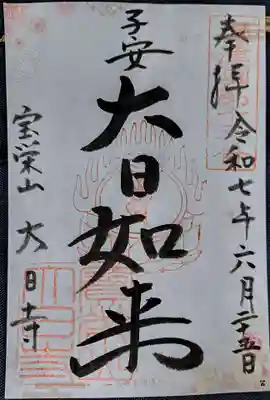 奉拝
令和七年六月二十五日
子安
大日如来
宝栄山 大日寺